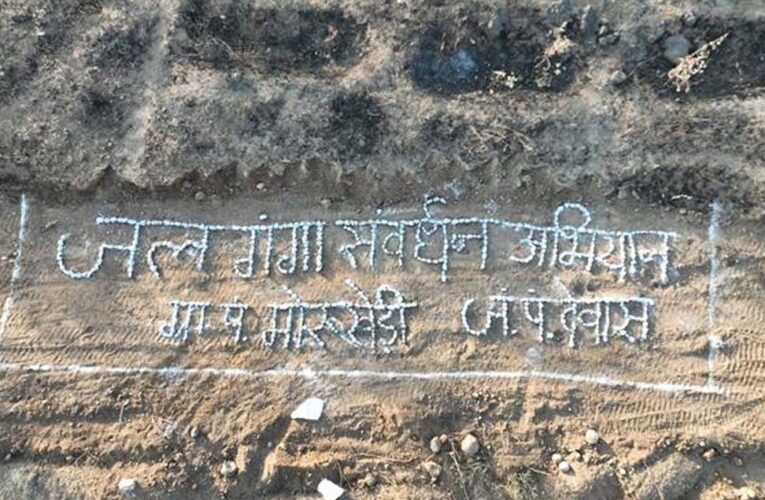 जल गंगा संवर्धन अभियान
ग्रा. पं. मोरूखेड़ी ज. पं. देवास